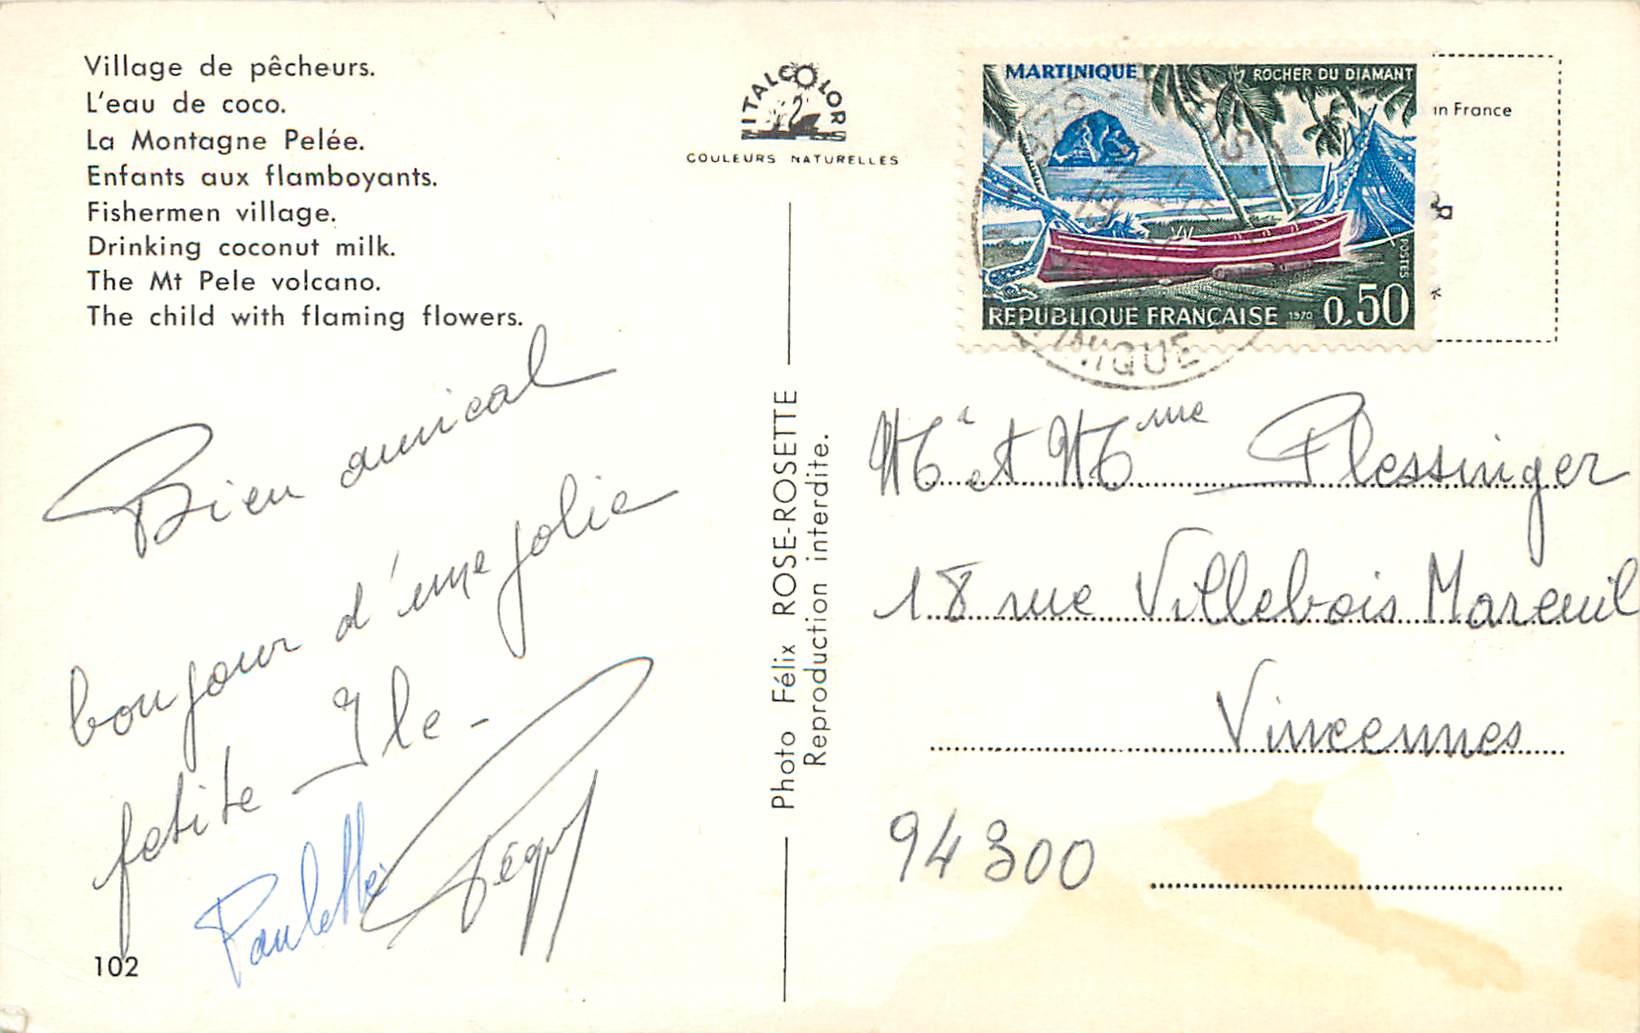 Village de pêcheurs.
L'eau de coco.
La Montagne Pelée.
Enfants aux flamboyants.
Fishermen village.
Drinking coconut milk.
The Mt Pele volcano.
The child with flaming flowers.
ITALCOLOR
COULEURS NATURELLES
MARTINIQUE
ROCHER DU DIAMANT
POSTES
REPUBLIQUE FRANÇAISE 1970 0,50
in France
Bien amical
bonjour d'une jolie
petite Ile -
Paulette
Péguy
102
Photo Félix ROSE-ROSETTE
Reproduction interdite.
Mr et Mme Plessinger
18 rue Villebois Mareuil
Vincennes
94300